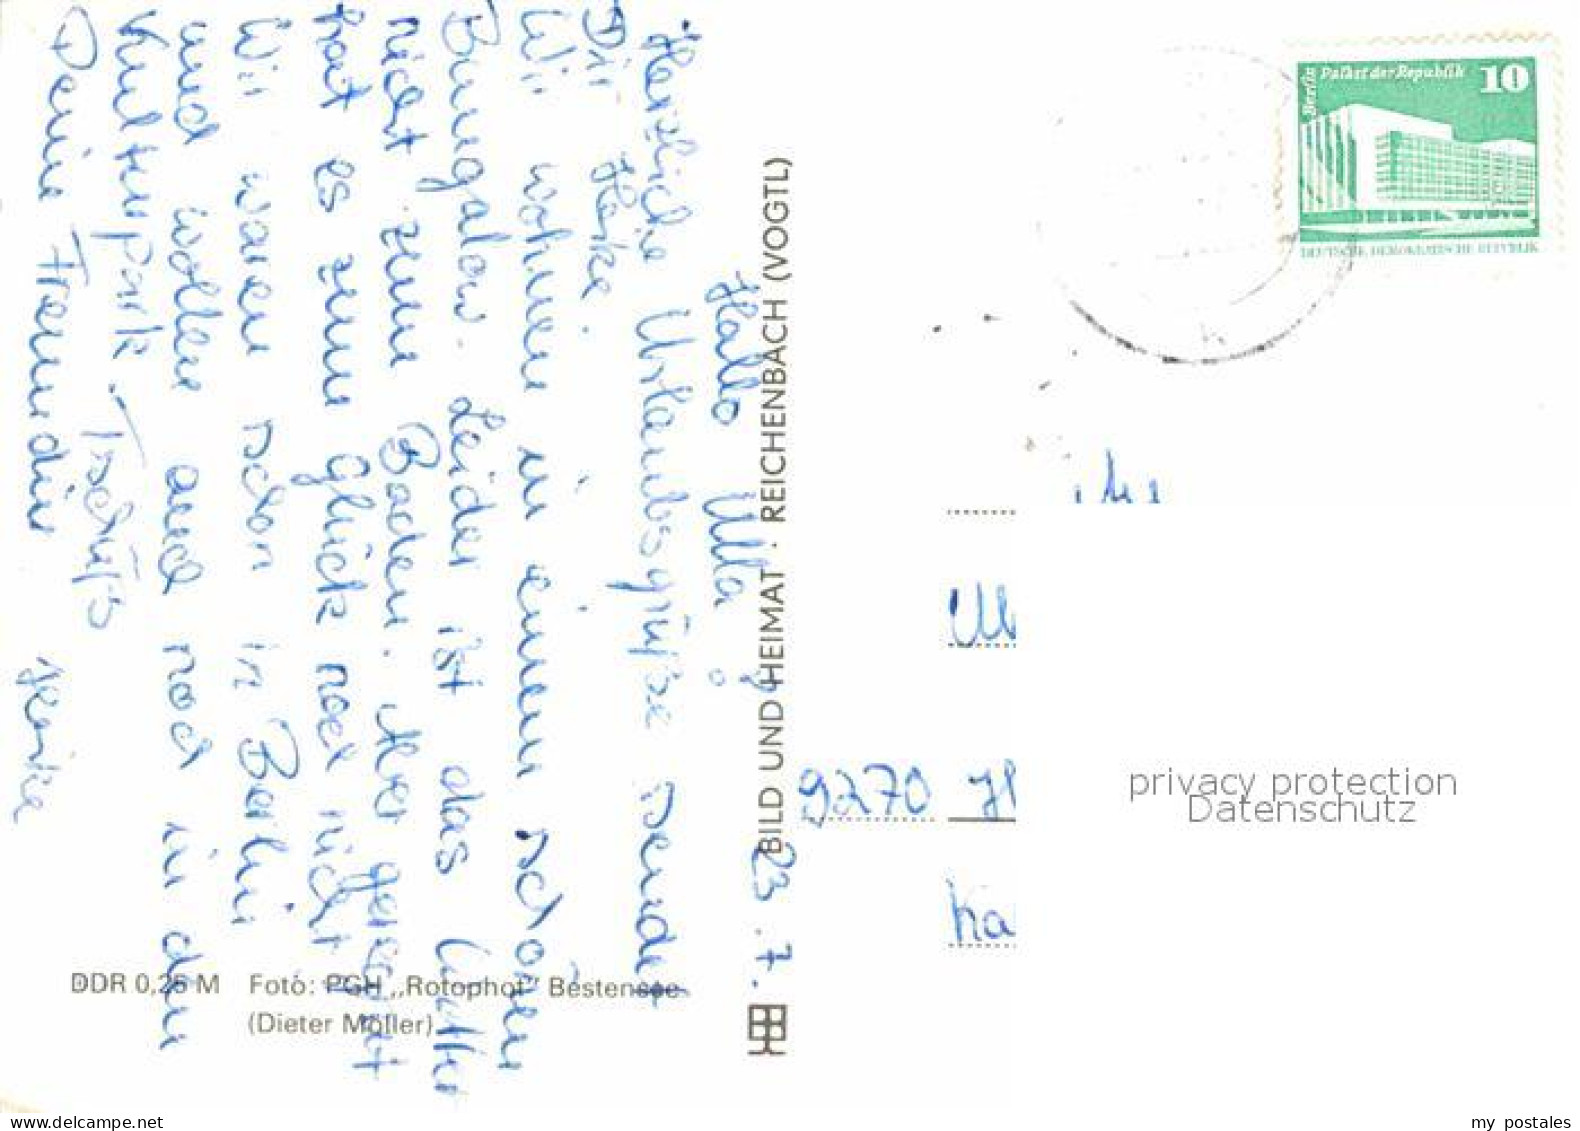 23.7.
Hallo Ulla!
Herzliche Urlaubsgrüße sendet
Dir Heike.
Wir wohnen in einem schönen
Bungalow. Leider ist das Wetter
nicht zum Baden. Aber geregnet
hat es zum glück noch nicht.
Wir waren schon in Berlin
und wollen auch noch in den
Kulturpark. Tschüß
Deine Freundin Heike
DDR 0,25 M Foto: PGH „Rotophot" Bestensee
(Dieter Möller)
BILD UND HEIMAT · REICHENBACH (VOGTL)
Berlin
Palast der Republik 10
DEUTSCHE DEMOKRATISCHE REPUBLIK
9270
Ka
privacy protection
Datenschutz
my postales
www.delcampe.net